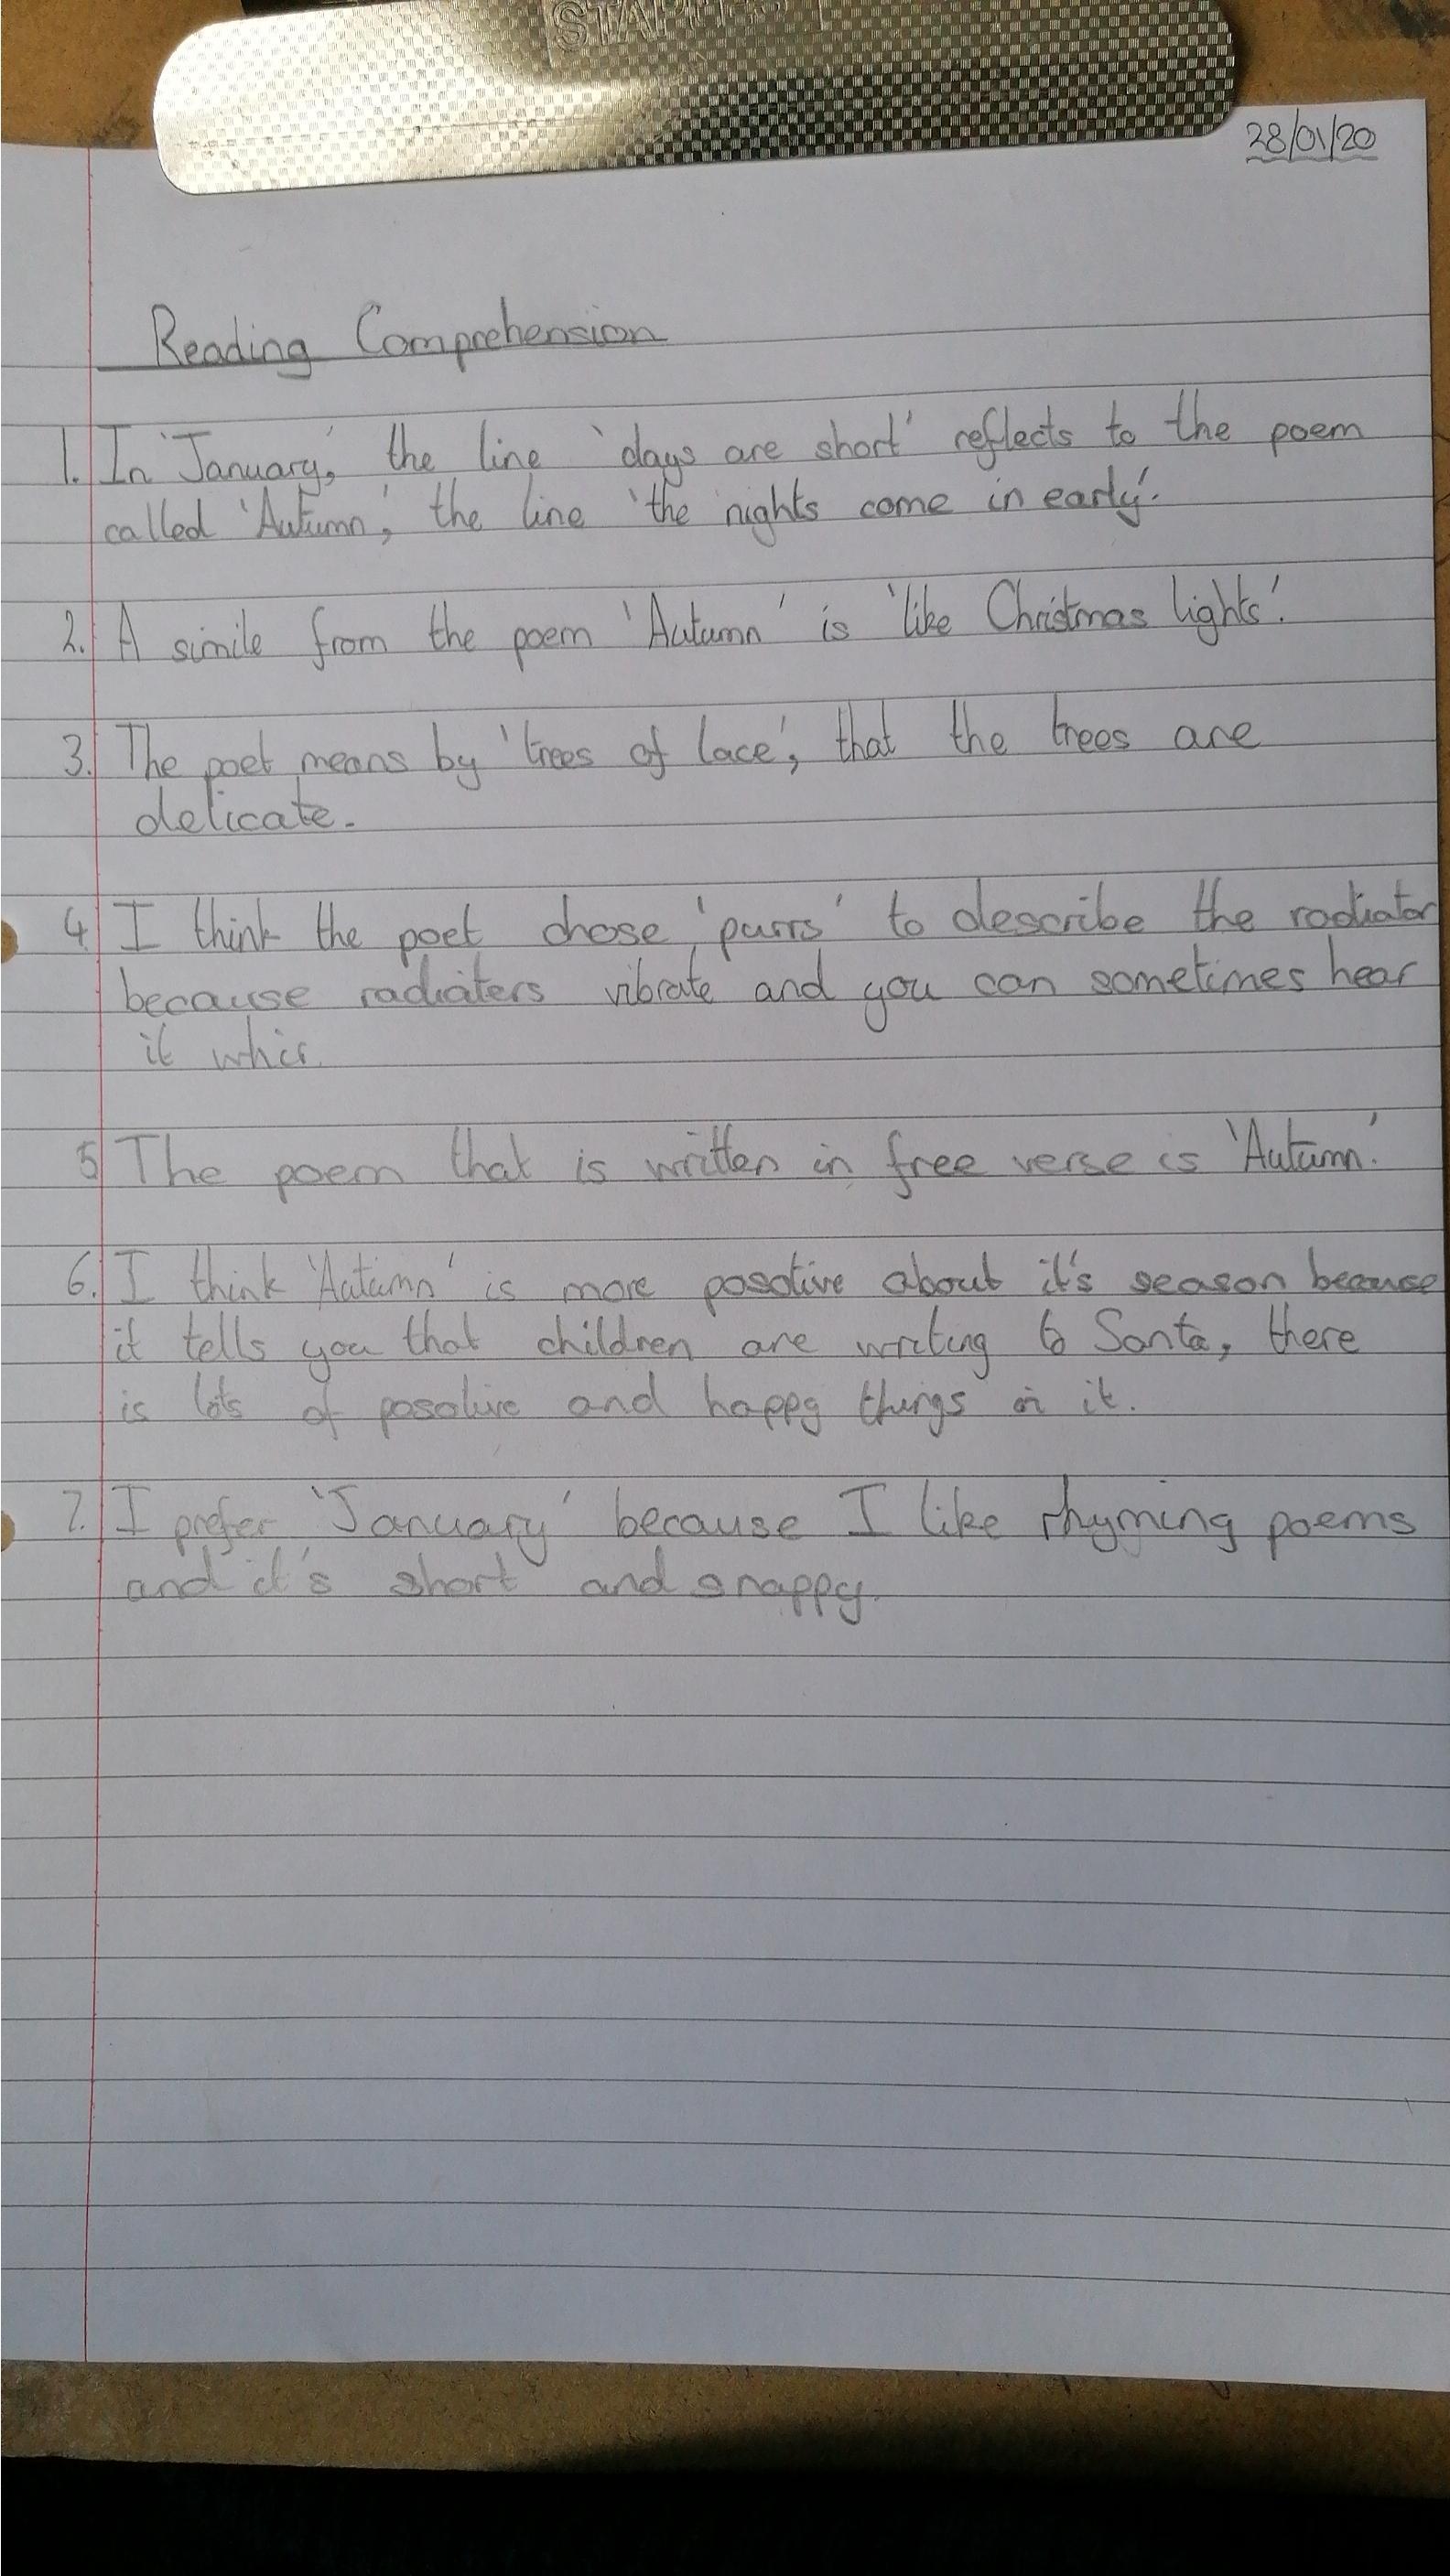 STAPLES
28/01/20
Reading Comprehension
1. In 'January,' the line 'days are short' reflects to the poem
called 'Autumn,' the line 'the nights come in early'.
2. A simile from the poem 'Autumn' is 'like Christmas lights'.
3. The poet means by 'trees of lace', that the trees are
delicate.
4. I think the poet chose 'purrs' to describe the radiator
because radiaters vibrate and you can sometimes hear
it whir.
5 The poem that is written in free verse is 'Autumn.'
6. I think 'Autumn' is more posotive about it's season because
it tells you that children are writing to Santa, there
is lots of posotive and happy things in it.
7. I prefer 'January' because I like rhyming poems
and it's short and snappy.